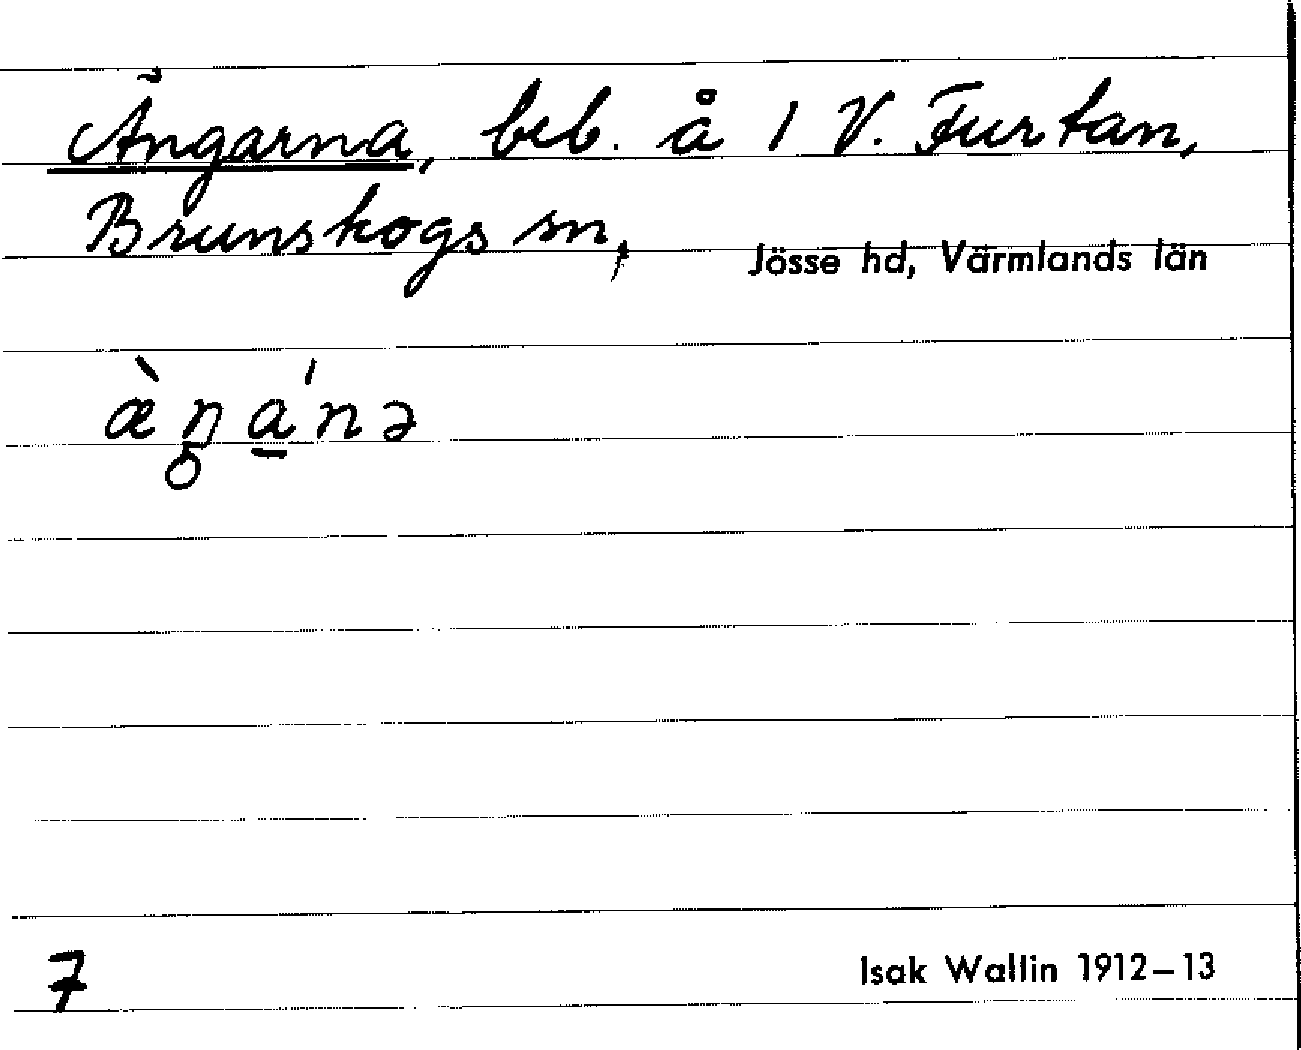 Ängarna, beb. å 1 V. Furtan,
Brunskogs sn, Jösse hd, Värmlands län
æ̀ŋá̱nə
7
Isak Wallin 1912–13